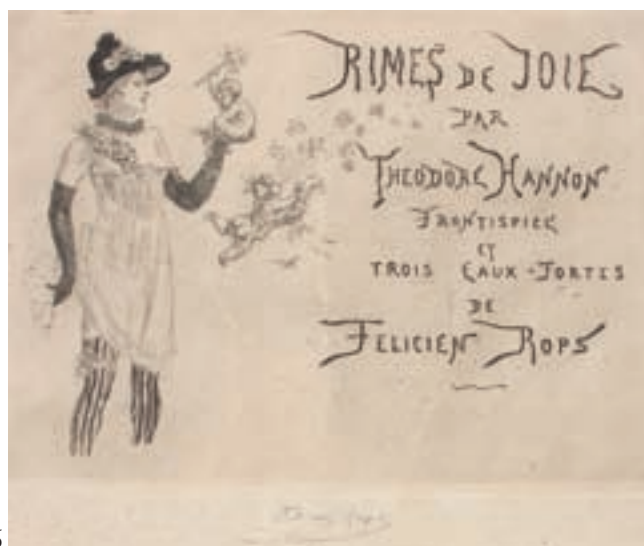 RIMES DE JOIE
PAR
THEODORE HANNON
FRONTISPICE
ET
TROIS EAUX-FORTES
DE
FELICIEN ROPS